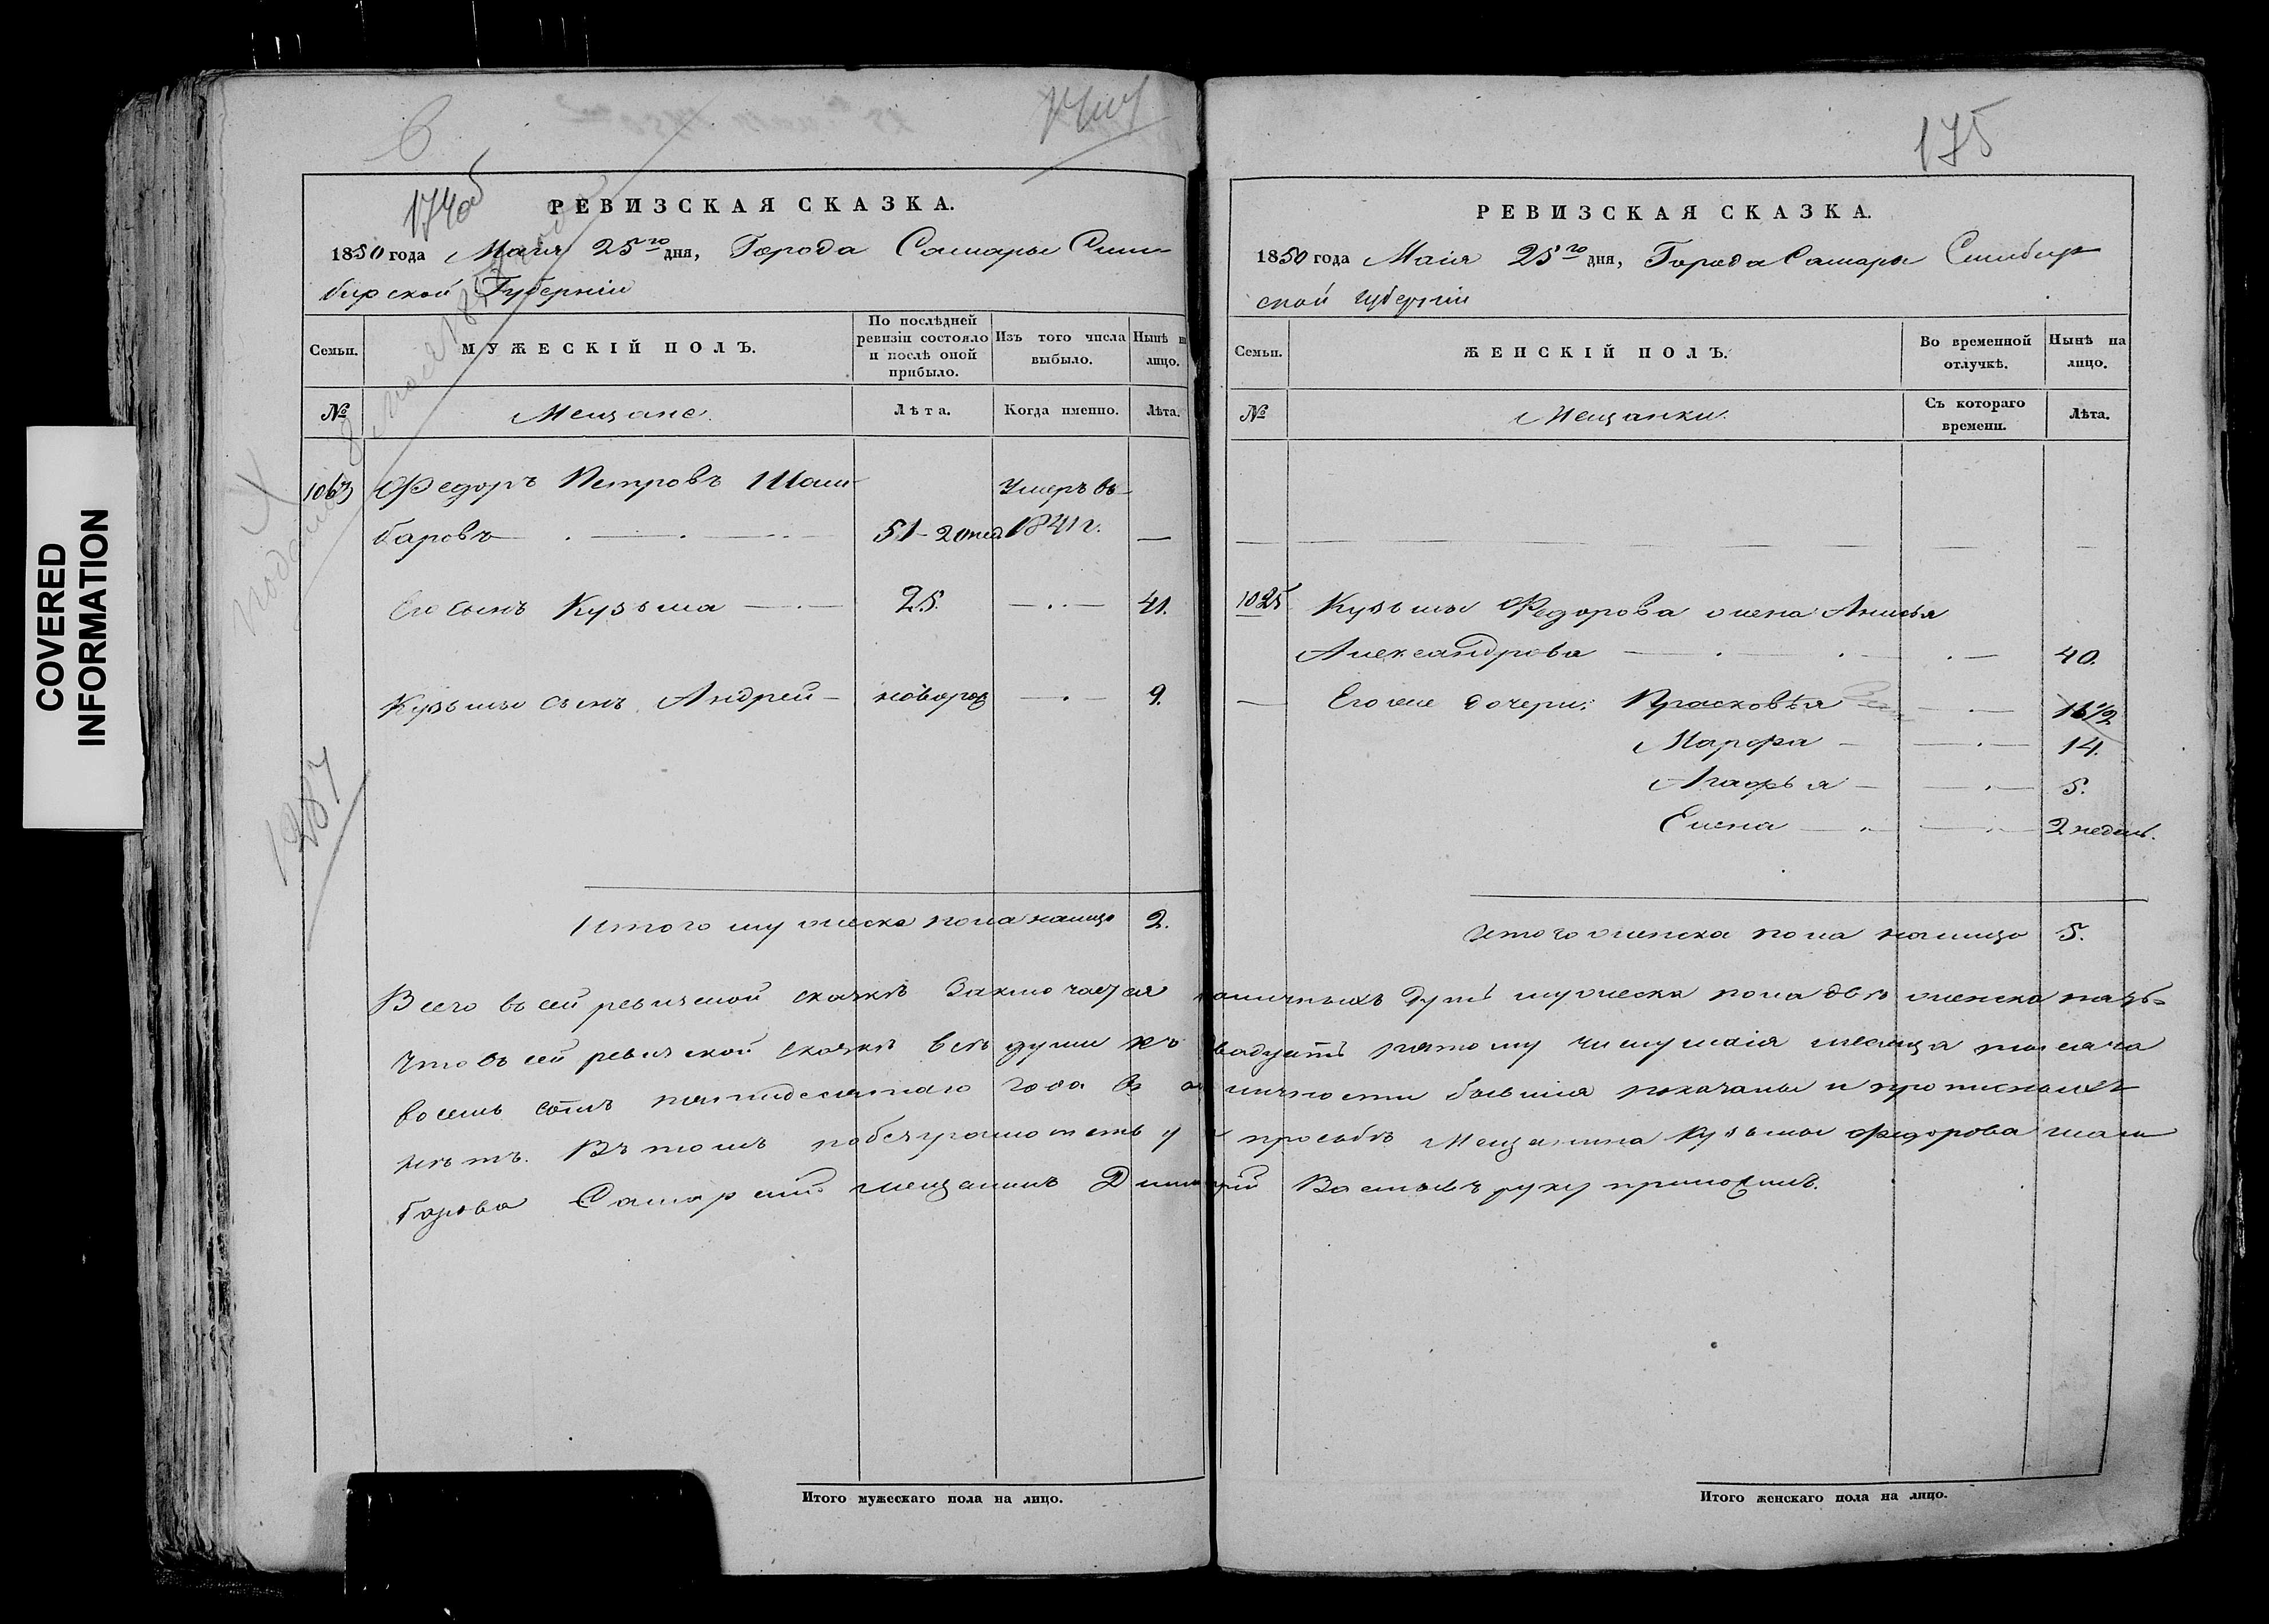 COVERED
INFORMATION
1287
174об
РЕВИЗСКАЯ СКАЗКА.
1850 года Маія 25го дня, Города Самары Сим-
бирской Губерніи
Семьи.
МУЖЕСКІЙ ПОЛЪ.
По послѣдней ревизіи состояло и послѣ оной прибыло.
Изъ того числа выбыло.
Нынѣ н лицо.
№
Мещане.
Лѣта.
Когда именно.
Лѣта.
1063 Федоръ Петровъ Шам- Умеръ въ
баровъ 51 - 1841 г. —
Его сынъ Кузьма 25. 41.
Кузьмы сынъ Андрей новорож 9.
Итого мужеска пола налицо 2.
175
РЕВИЗСКАЯ СКАЗКА.
1850 года Маія 25го дня, Города Самары Симбир-
ской губерніи
Семьи.
ЖЕНСКІЙ ПОЛЪ.
Во временной отлучкѣ.
Нынѣ на лицо.
№
Мещанки.
Съ котораго времени.
Лѣта.
1025 Кузьмы Федорова жена Анисья
Александрова 40.
Его же дочери: Прасковья 16 1/2
Марфа 14.
Агафья 5.
Елена 2 недель.
Итого женска пола налицо 5.
Всего въ сей ревизской сказкѣ заключается наличныхъ душъ мужеска пола двѣ женска пять
что въ сей ревизской сказкѣ всѣ души къ двадцать пятому числу маія месяца тысяча
восемь сотъ пятидесятаго года въ наличности бывшія показаны и прописныхъ
нѣтъ. Въ томъ по безграмотству и просьбѣ Мещанина Кузьмы Федорова Шам-
барова Самарский мещанинъ Димитрій руку приложилъ.
Итого мужескаго пола на лицо.
Итого женскаго пола на лицо.